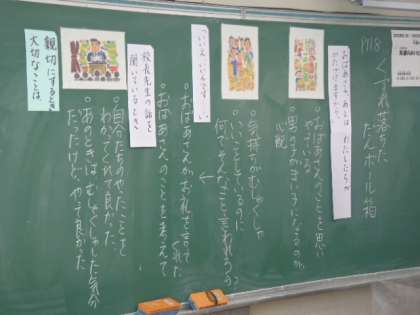 P118
くずれ落ちた
だんボール箱
おばあさん、あとは わたしたちが
かたづけますから。
•おばあさんのことを思い
やっている。
•男の子がまい子になるのが
心配
•気持ちがむしゃくしゃ
•いいことをしているのに
何でそんなことを言われるの？
「いいえ、いいんです。」
•おばあさんがお礼を言って
くれた
•おばあさんのことを考えて
校長先生の話を
聞いているとき
•自分たちのやったことを
わかってくれて良かった。
•あのときはむしゃくしゃした気分
だったけど、やって良かった
親切にするとき
大切なことは、